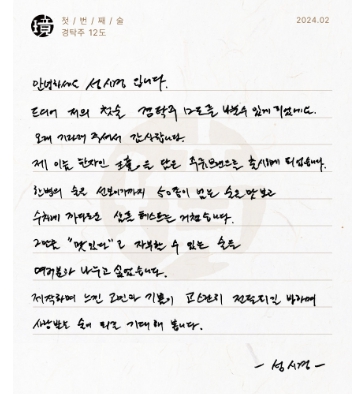 첫 / 번 / 째 / 술
경탁주 12도
2024.02
안녕하세요 성시경 입니다.
드디어 저의 첫술 경탁주 12도를 나눌수 있게 되었네요.
오래 기다려 주셔서 감사합니다.
제 이름 한자인 경璄을 담은 주류브랜드로 출시하게 되었습니다.
한병의 술을 선보이기까지 50종이 넘는 술을 맛보고
수차례 까다로운 샘플 테스트를 거쳤습니다.
그만큼 "맛있다"고 자부할 수 있는 술을
여러분과 나누고 싶었습니다.
제작하며 느낀 고민과 기쁨이 고스란히 전달되길 바라며
사랑받는 술이 되길 기대해 봅니다.
- 성시경 -